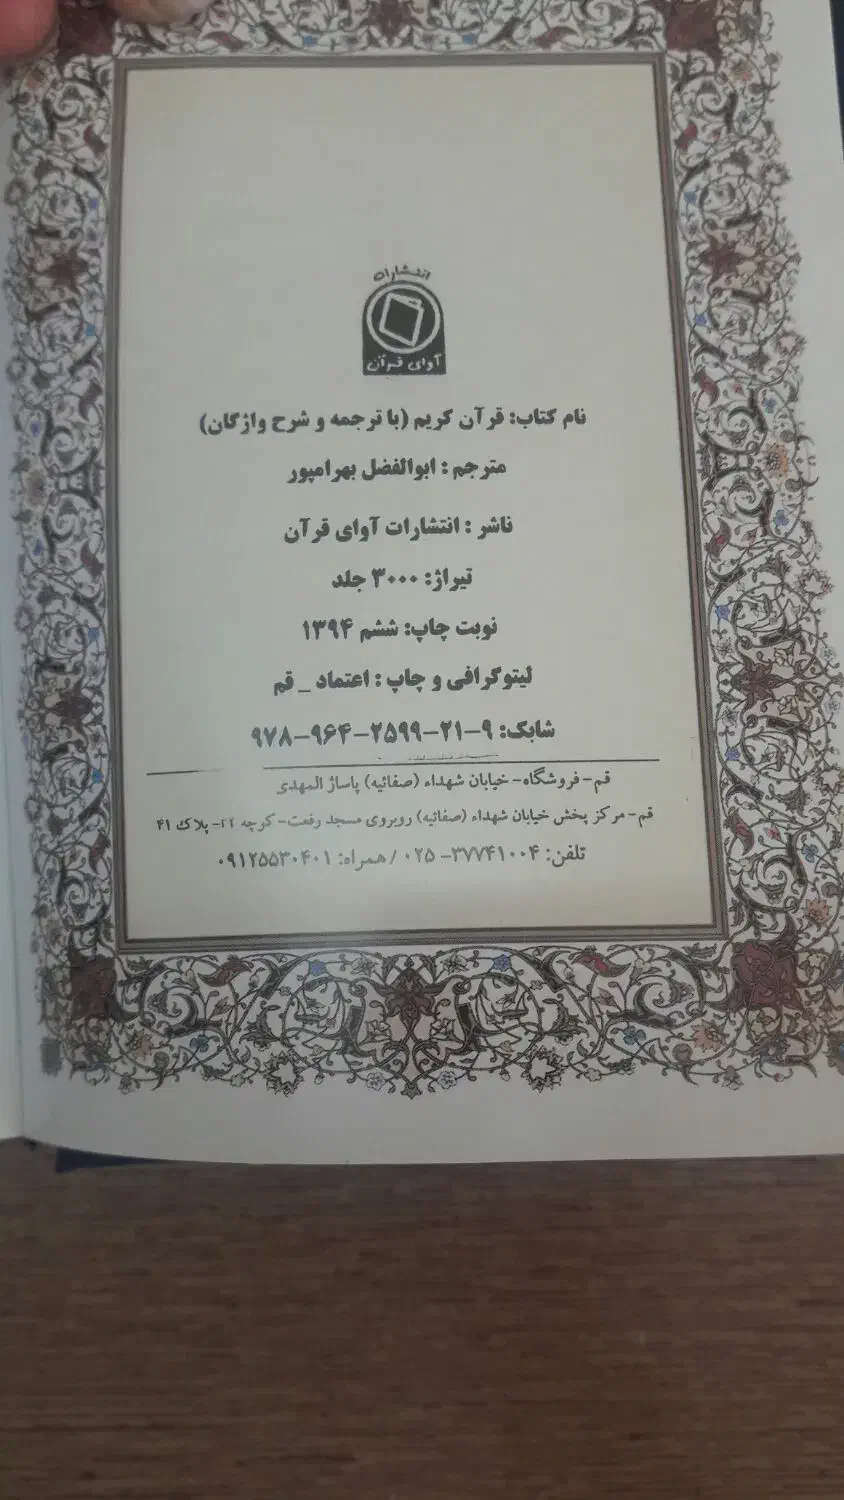 انتشارات
آوای قرآن
نام کتاب: قرآن کریم (با ترجمه و شرح واژگان)
مترجم : ابوالفضل بهرامپور
ناشر : انتشارات آوای قرآن
تیراژ: ۳۰۰۰ جلد
نوبت چاپ: ششم ۱۳۹۴
لیتوگرافی و چاپ : اعتماد _ قم
شابک: ۹-۲۱-۲۵۹۹-۹۶۴-۹۷۸
قم- فروشگاه- خیابان شهداء (صفائیه) پاساژ المهدی
قم- مرکز پخش خیابان شهداء (صفائیه) روبروی مسجد رفعت- کوچه ۲۲- پلاک ۴۱
تلفن: ۳۷۷۴۱۰۰۴- ۰۲۵ / همراه: ۰۹۱۲۵۵۳۰۴۰۱